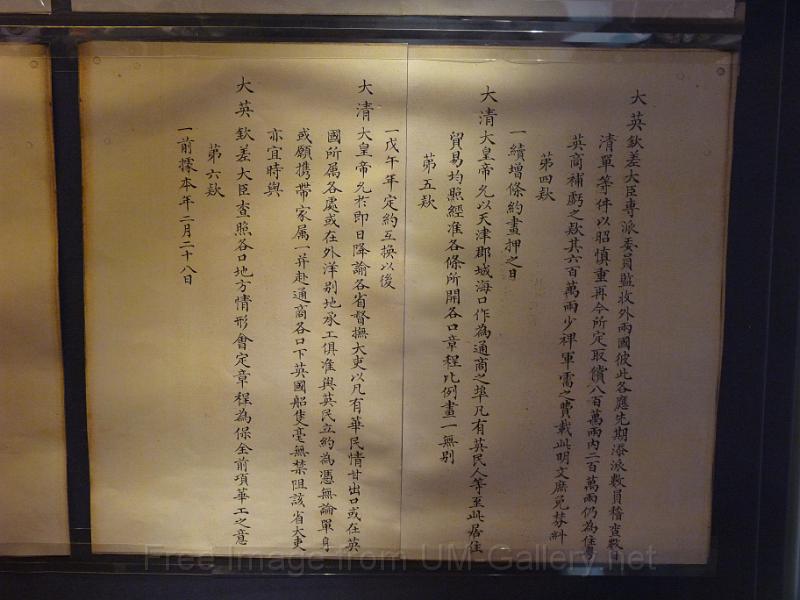 大英欽差大臣專派委員監收外兩國彼此各應先期添派數員稽查數目
清單等件以昭慎重再今所定取償八百萬兩內二百萬兩仍為住粵
英商補虧之款其六百萬兩少裨軍需之費載此明文庶免棼糾
第四款
一續增條約畫押之日
大清大皇帝允以天津郡城海口作為通商之埠凡有英民人等至此居住
貿易均照經准各條所開各口章程比例畫一無別
第五款
一戊午年定約互換以後
大清大皇帝允於即日降諭各省督撫大吏以凡有華民情甘出口或在英
國所屬各處或在外洋別地承工俱准與英民立約為憑無論單身
或願攜帶家屬一并赴通商各口下英國船隻毫無禁阻該省大吏
亦宜時與
大英欽差大臣查照各口地方情形會定章程為保全前項華工之意
第六款
一前據本年二月二十八日
Free Image from UM-Gallery.net